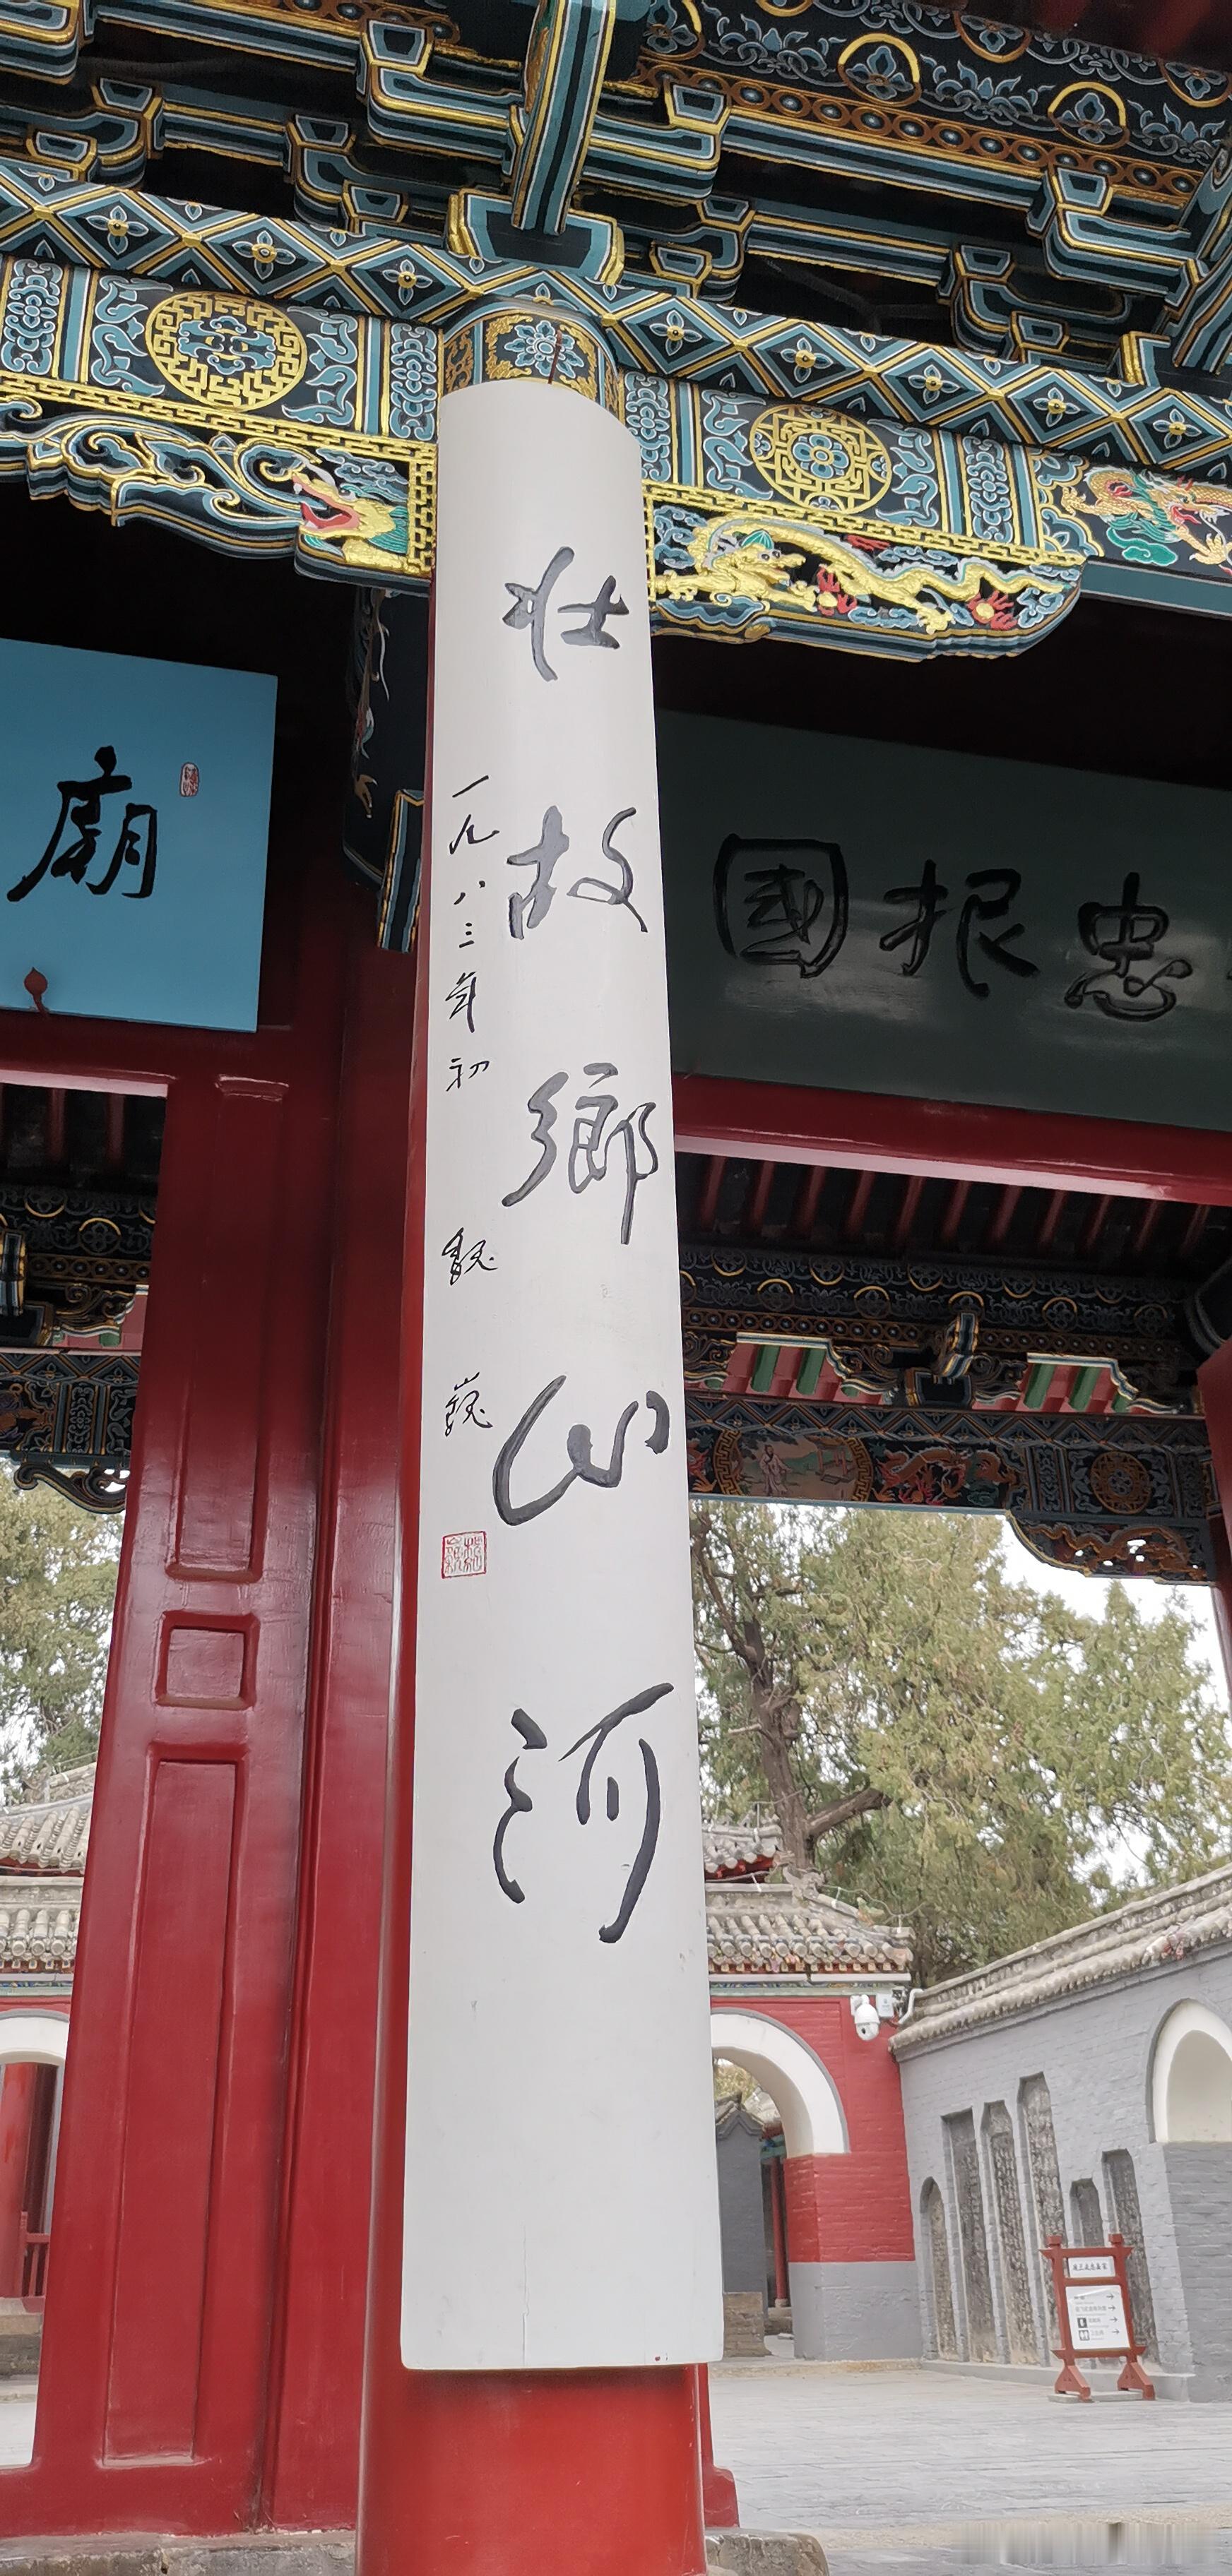 壮故鄉山河
一九八三年初 魏巍
廟
國报忠